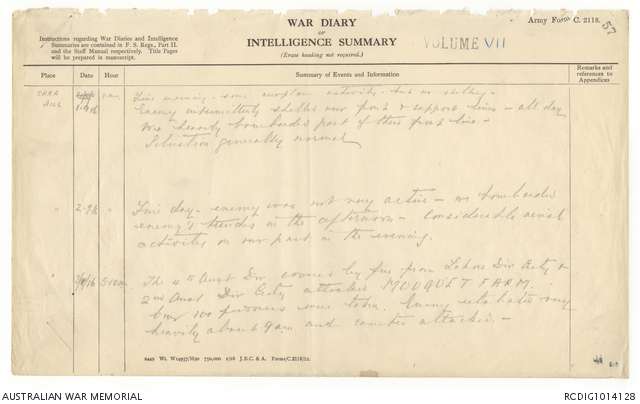 Army Form C. 2118.
57
WAR DIARY
or
INTELLIGENCE SUMMARY
(Erase heading not required.)
VOLUME VII
Instructions regarding War Diaries and Intelligence
Summaries are contained in F. S. Regs., Part II.
and the Staff Manual respectively. Title Pages
will be prepared in manuscript.
Place Date Hour Summary of Events and Information Remarks and references to Appendices
HILL 1.9.16 Fine morning - some aeroplane activity - but no shelling -
Enemy intermittently shelled our front & support lines - all day
We heavily bombarded part of their front line -
Situation generally normal
" 2.9.16 Fine day - enemy was not very active - we bombarded
enemy's trenches in the afternoon - Considerable aerial
activity on our part in the evening.
" 3/9/16 5.10am The 4th Aust Div covered by fire from Lahore Div Arty &
2nd Aust Div Arty attacked MOUQUET FARM.
Over 100 prisoners were taken. Enemy retaliated very
heavily about 6.9am and counter attacked -
2449 Wt. W14957/M90 750,000 1/16 J.B.C. & A. Forms/C.2118/12.
AUSTRALIAN WAR MEMORIAL
RCDIG1014128